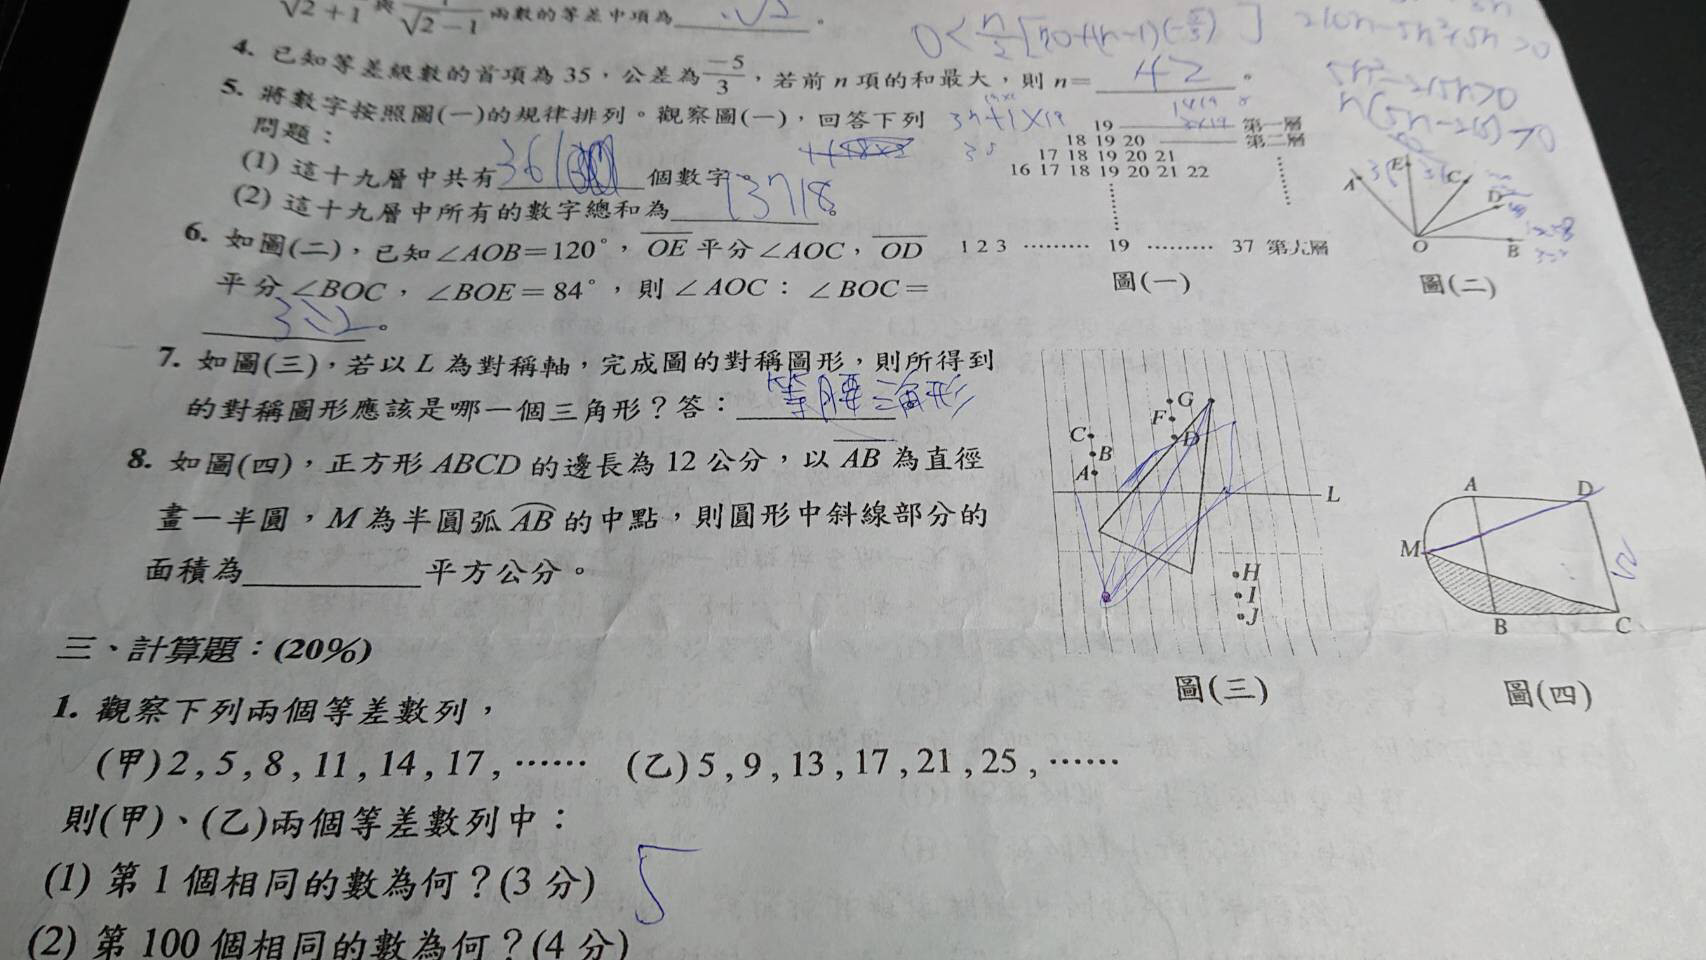 √2+1 與 1/√2−1 兩數的等差中項為 √2 。
4. 已知等差級數的首項為 35,公差為 −5/3,若前 n 項的和最大,則 n= 42 。
5. 將數字按照圖(一)的規律排列。觀察圖(一),回答下列
問題:
(1) 這十九層中共有 361 個數字。
(2) 這十九層中所有的數字總和為
19 第一層
18 19 20 第二層
17 18 19 20 21
16 17 18 19 20 21 22
1 2 3 ⋯⋯⋯ 19 ⋯⋯⋯ 37 第九層
圖(一)
A E C D O B
圖(二)
6. 如圖(二),已知∠AOB=120°,OE 平分∠AOC,OD
平分∠BOC,∠BOE=84°,則∠AOC:∠BOC=
3:2 。
7. 如圖(三),若以 L 為對稱軸,完成圖的對稱圖形,則所得到
的對稱圖形應該是哪一個三角形?答: 等腰三角形
8. 如圖(四),正方形 ABCD 的邊長為 12 公分,以 AB 為直徑
畫一半圓,M 為半圓弧 AB 的中點,則圓形中斜線部分的
面積為 平方公分。
G
F
D
C
B
A
L
H
I
J
圖(三)
A D
M
12
B C
圖(四)
三、計算題:(20%)
1. 觀察下列兩個等差數列,
(甲) 2 , 5 , 8 , 11 , 14 , 17 , ⋯⋯ (乙) 5 , 9 , 13 , 17 , 21 , 25 , ⋯⋯
則(甲)、(乙)兩個等差數列中:
(1) 第 1 個相同的數為何?(3 分) 5
(2) 第 100 個相同的數為何?(4 分)